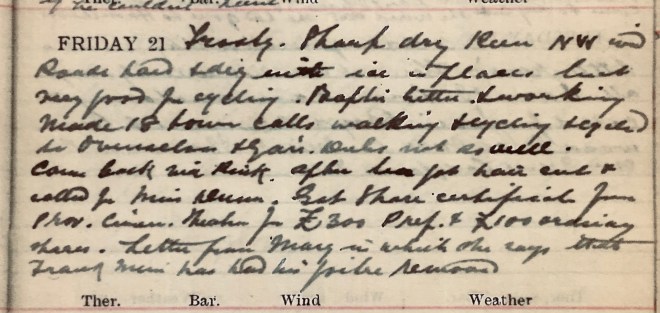 Ther. Bar. Wind Weather
FRIDAY 21 Frosty. Sharp dry keen NW wind
Roads hard & dry with ice in places but
very good for cycling. better & working
Made 18 town calls walking & cycling & cycled
to & not as well.
Came back via Kirk. After tea got hair cut &
called for Miss Dunn. Got Share certificate from
Prov. Cinem. Theatres for £300 Pref. & £100 ordinary
shares. Letter from Mary in which she says that
Frank has had his removed
Ther. Bar. Wind Weather